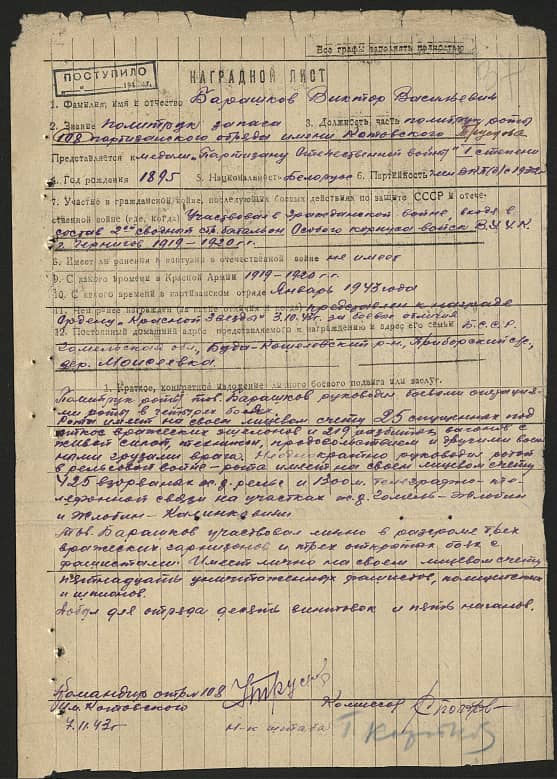 Все графы заполнять полностью
ПОСТУПИЛО
194 г.
НАГРАДНОЙ ЛИСТ
1. Фамилия, имя и отчество Барашков Виктор Васильевич
2. Звание политрук запаса 3. Должность, часть политрук роты
108 партизанского отряда имени Котовского
Представляется к медали „Партизану Отечественной войны" 1 степени
4. Год рождения 1895 5. Национальность Белорус 6. Партийность
7. Участие в гражданской войне, последующих боевых действиях по защите СССР и отече-
ственной войне (где, когда) Участвовал в гражданской войне, входя в
состав 2го сводного стр. батальон Особого корпуса войск
г. Чернигов 1919-1920 г.г.
8. Имеет ли ранения и контузии в отечественной войне не имеет
9. С какого времени в Красной Армии 1919-1920 г.г.
10. С какого времени в партизанском отряде Январь 1943 года
11. Чем ранее награжден (за какие отличия и когда) представлен к награде
Ордену „Красной Звезды" 3.10.43г. за боевые отличия
12. Постоянный домашний адрес представляемого к награждению и адрес его семьи Б.С.С.Р.
Гомельская обл., Буда-Кошелевский р-н, Приборский с/с,
дер. Моисеевка.
1. Краткое, конкретное изложение личного боевого подвига или заслуг.
Политрук роты тов. Барашков руководил боевыми операция-
ми роты в четырех боевых.
Рота имеет на своем лицевом счету 25 спущенных под
откос вражеских эшелонов и 219 разбитых вагонов с
живой силой, техникой, продовольствием и другими воен-
ными грузами врага. Неоднократно руководил ротой
в рельсовой войне - рота имеет на своем лицевом счету
425 взорванных ж.д. рельс и 1300 м. телеграфно-те-
лефонной связи на участках ж.д. Гомель-Жлобин
и Жлобин-Калинковичи
Тов. Барашков участвовал лично в разгроме трех
вражеских гарнизонов и трех открытых боях с
фашистами. Имеет лично на своем лицевом счету
пятнадцать уничтоженных фашистов, полицейских
и шпионов.
Добыл для отряда десять винтовок и пять наганов.
Командир отр. 108
им. Котовского
Комиссар
7.11.43г
Н-к штаба